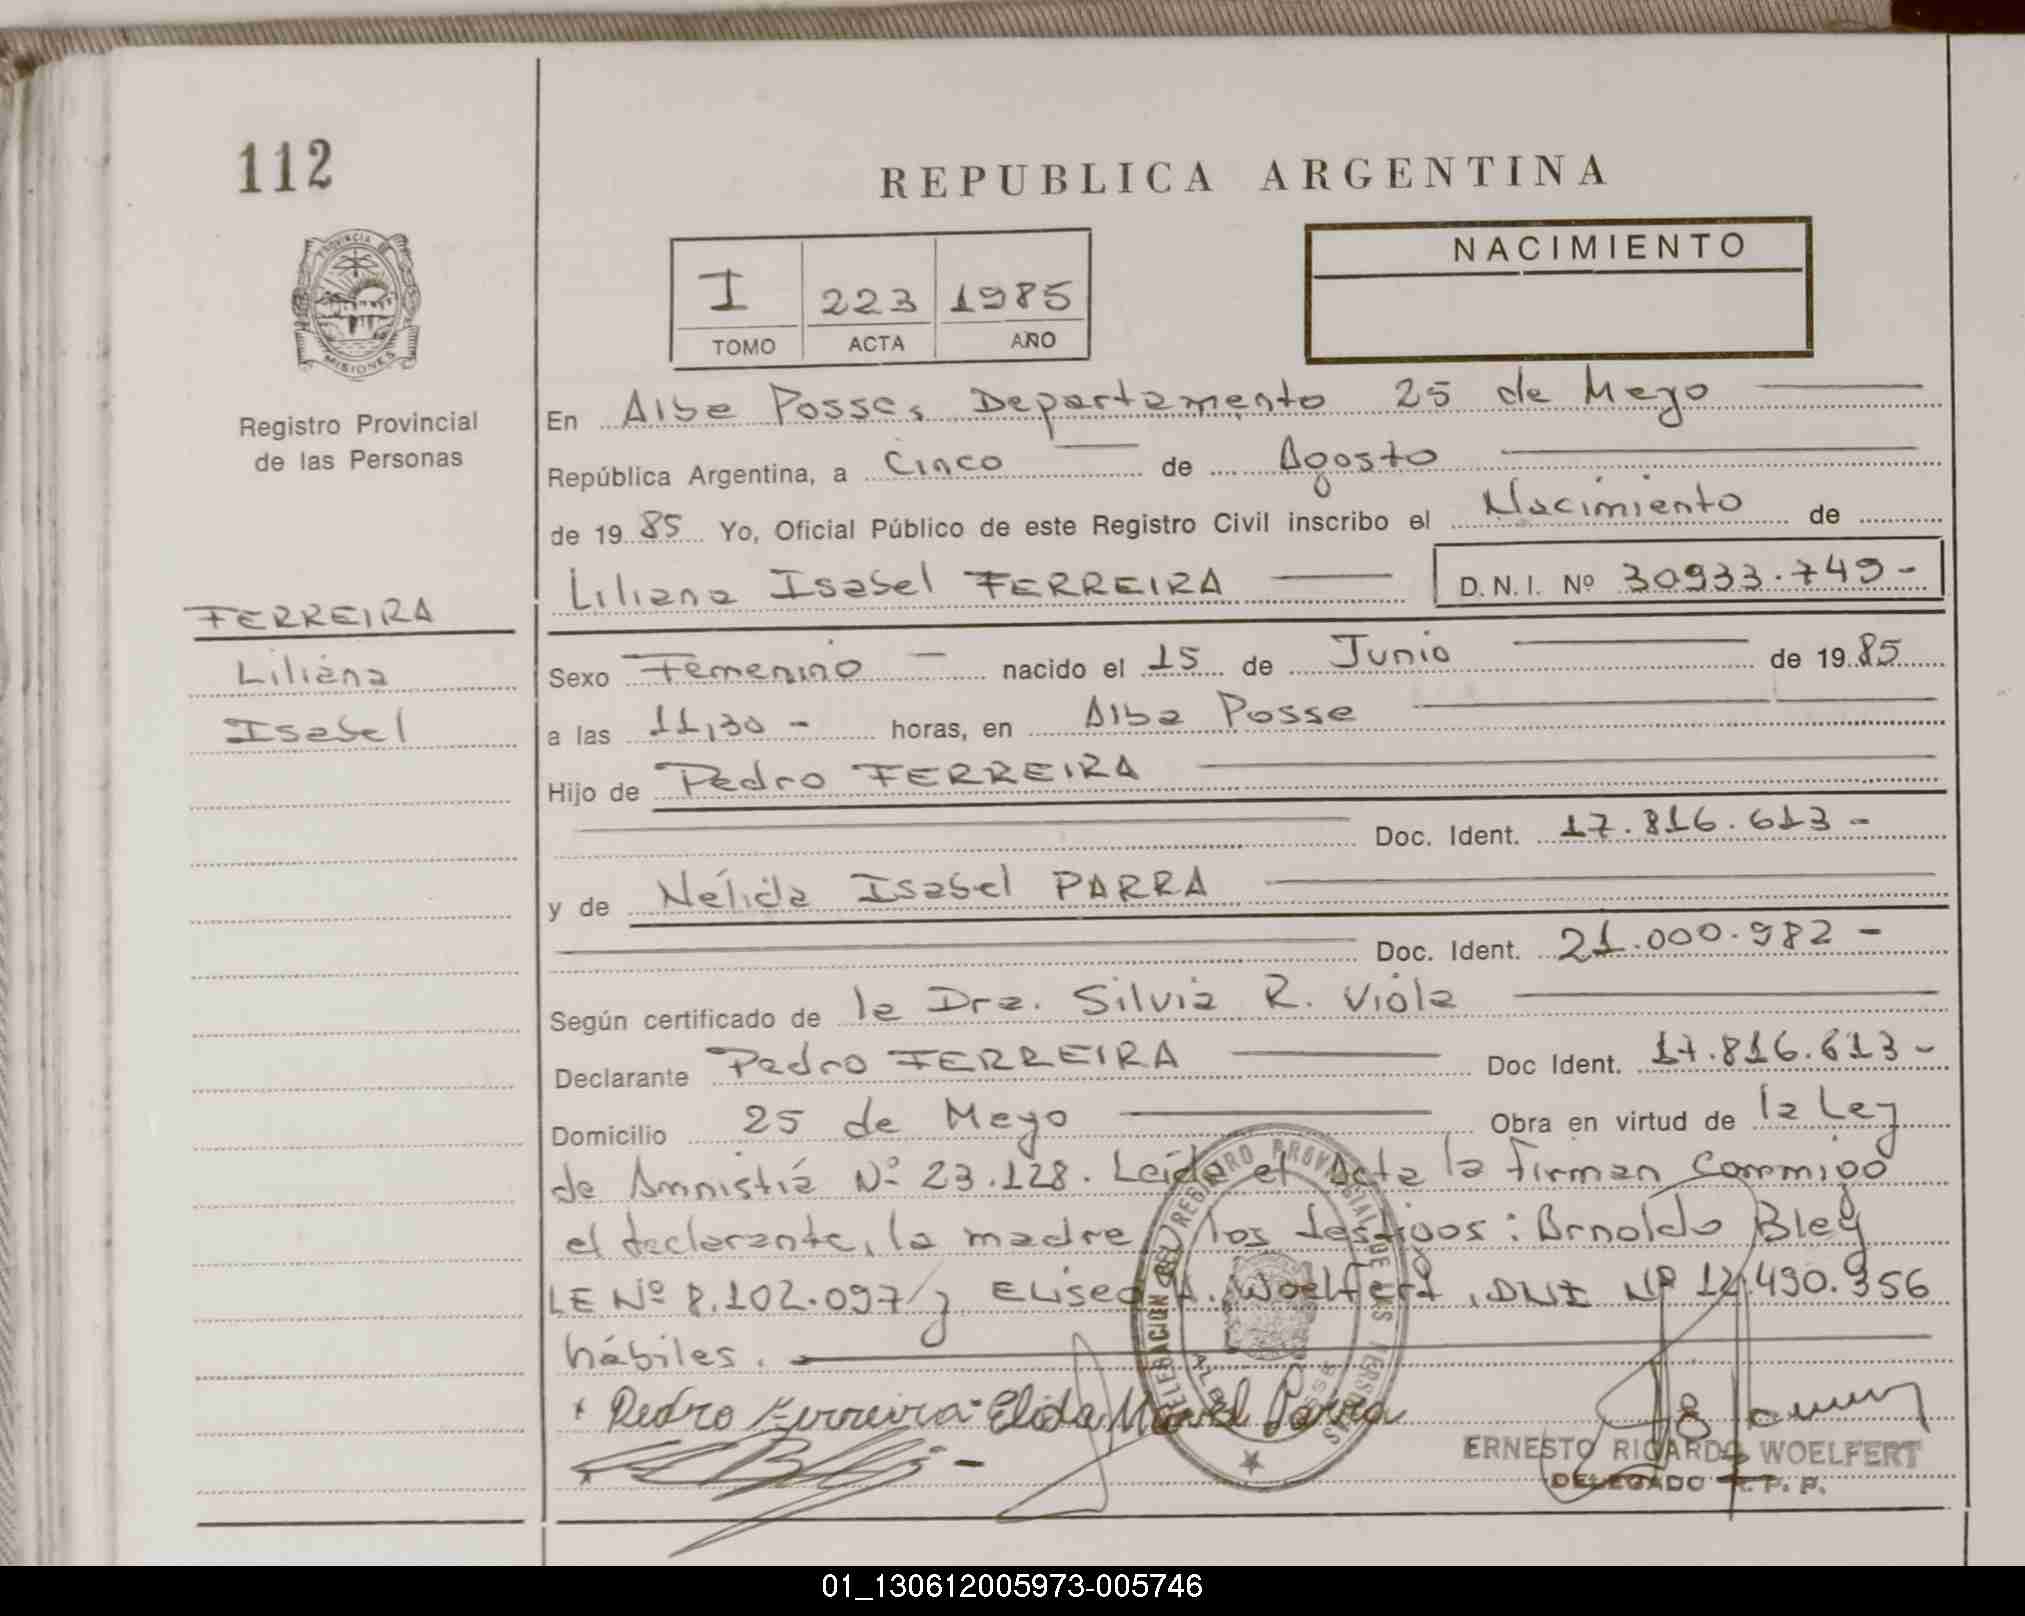 112
REPUBLICA ARGENTINA
PROVINCIA DE
MISIONES
Registro Provincial
de las Personas
I 223 1985
TOMO ACTA AÑO
NACIMIENTO
En Alba Posse, Departamento 25 de Mayo
República Argentina, a Cinco de Agosto
de 19 85 Yo, Oficial Público de este Registro Civil inscribo el Nacimiento de
Liliana Isabel FERREIRA D.N.I. Nº 30933.749-
FERREIRA
Liliana
Isabel
Sexo Femenino - nacido el 15 de Junio de 19 85
a las 11,30 - horas, en Alba Posse
Hijo de Pedro FERREIRA
Doc. Ident. 17.816.613-
y de Nélida Isabel PARRA
Doc. Ident. 21.000.982-
Según certificado de la Dra. Silvia R. Viola
Declarante Pedro FERREIRA Doc Ident. 17.816.613-
Domicilio 25 de Mayo Obra en virtud de la Ley
de Amnistiá Nº 23.128. Leída el Acta la firman conmigo
el declarante, la madre los testigos: Arnoldo Bley
LE Nº 8.102.097 y Eliseo A. Woelfert, DNI Nº 12.490.356
hábiles.
Pedro Ferreira - Elida Parra
ERNESTO RICARDO WOELFERT
DELEGADO R. P. P.
01_130612005973-005746